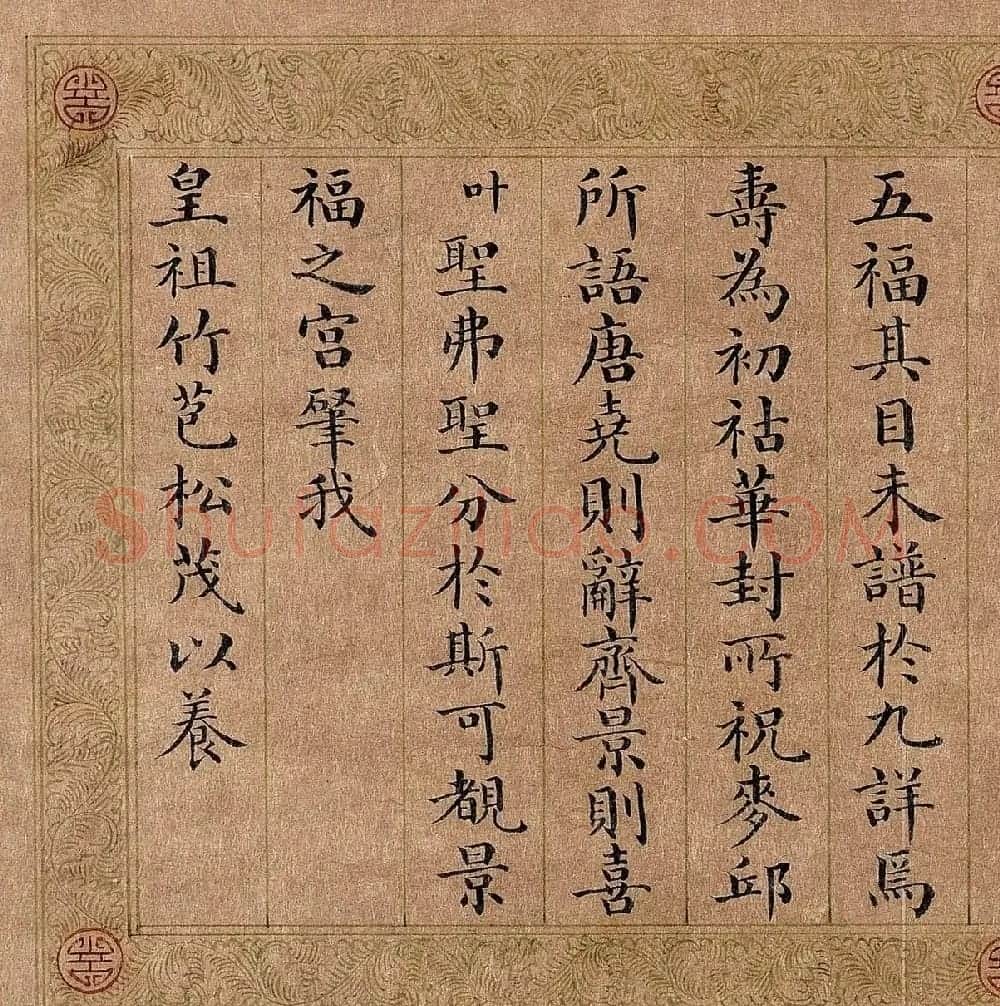 五福其目未譜於九詳焉
壽為初祜華封所祝麥邱
所語唐堯則辭齊景則喜
叶聖弗聖分於斯可覩景
福之宮肇我
皇祖竹苞松茂以養
Shufaziliao.COM